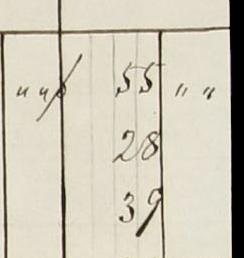 „ „ ꝑ 55 „ „
28
39